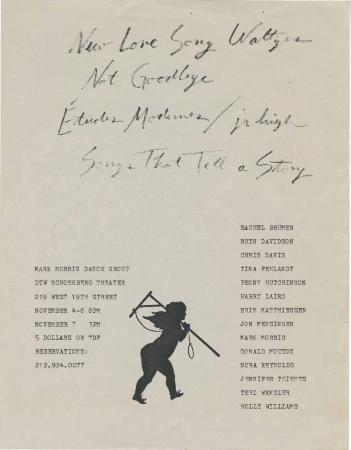 New Love Song Waltzes
Not Goodbye
Études Modernes / jr high
Songs That Tell a Story
MARK MORRIS DANCE GROUP
DTW SCHOENBERG THEATER
219 WEST 19TH STREET
NOVEMBER 4-6 8PM
NOVEMBER 7 3PM
5 DOLLARS OR TDF
RESERVATIONS:
212.924.0077
RACHEL BRUMER
RUTH DAVIDSON
CHRIS DAVIS
TINA FEHLANDT
PENNY HUTCHINSON
HARRY LAIRD
ERIN MATTHIESSEN
JON MENSINGER
MARK MORRIS
DONALD MOUTON
NORA REYNOLDS
JENNIFER THIENES
TERI WEKSLER
HOLLY WILLIAMS